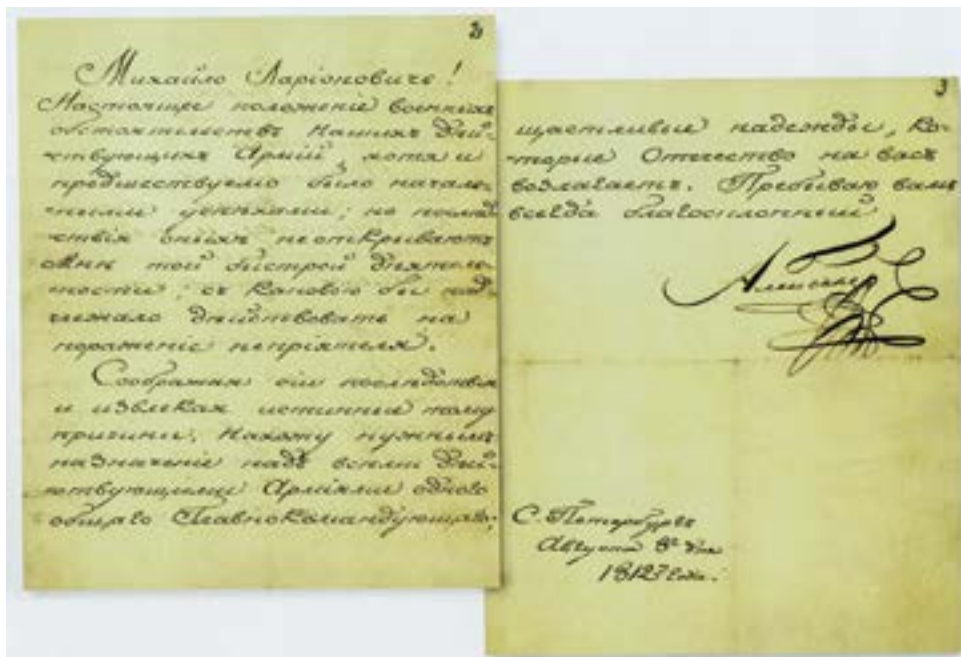 2
Михайло Ларіоновичь!
Настоящее положеніе военныхъ
обстоятельствъ Нашихъ дѣй-
ствующихъ Армій, хотя и
предшествуемо было началь-
ными успѣхами; но послѣд-
ствія оныхъ неоткрываютъ
Мнѣ той быстрой дѣятель-
ности; съ каковою бы над-
лежало дѣйствовать на
пораженіе непріятеля.
Соображая сіи послѣдствія
и извлекая истинныя тому
причины, Нахожу нужнымъ
назначеніе надъ всѣми дѣй-
ствующими Арміями одного
общаго Главнокомандующаго;
3
щастливые надежды, ко-
торые Отечество на васъ
возлагаетъ. Пребываю вамъ
всегда благосклонный
Александръ
С. Петербургъ
Августа 8го дня
1812го года.